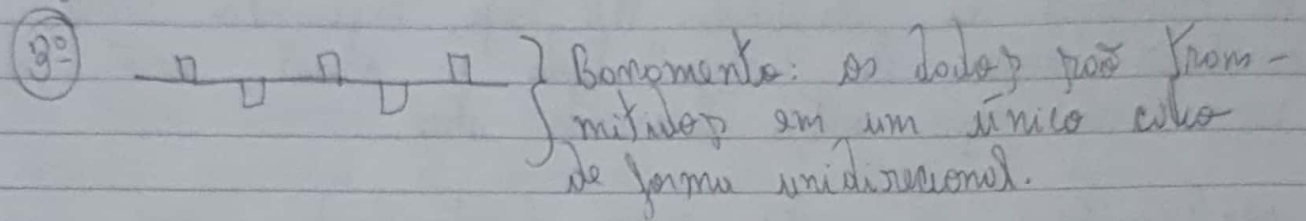 3º Barramento: os dados são trans-
mitidos em um único cabo
de forma unidirecional.